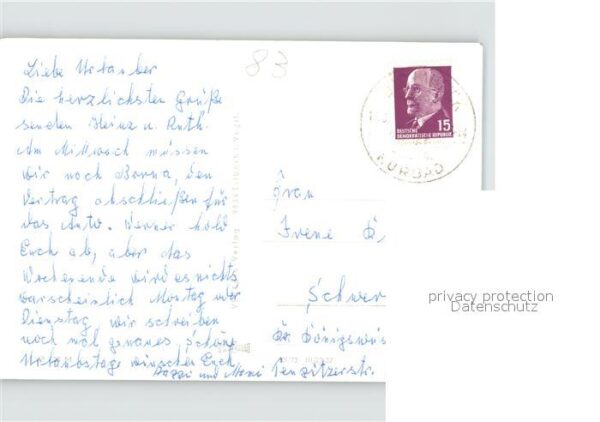 83
Liebe Urlauber
Die herzlichsten Grüße
senden Heinz u. Ruth.
Am Mittwoch müssen
wir noch Borna, den
Vertrag abschließen für
das Auto. Werner hold
Euch ab, aber das
Wochenende wird es nichts
warscheinlich Montag oder
Dienstag, wir schreiben
noch mal genaues, schöne
Urlaubstage wünschen Euch
und
15
DEUTSCHE
DEMOKRATISCHE REPUBLIK
KURBAD
Frau
Irene
Schwer
Kr. Königswus
privacy protection
Datenschutz